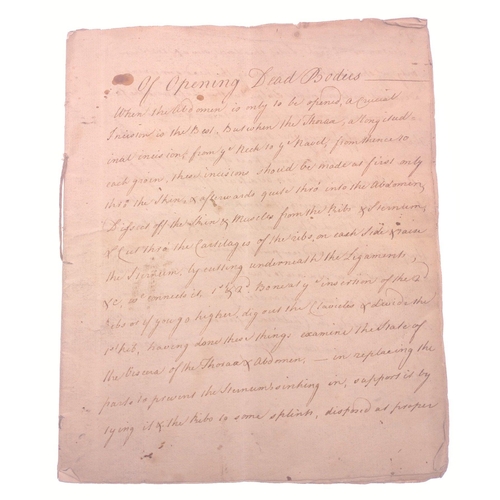 Of Opening Dead Bodies
When the Abdomen is only to be opened, a Crucial
Incision is the Best, But when the Thorax, a longitud-
inal incision from yᵉ Neck to yᵉ Navel, from thence to
each groin, these incisions should be made at first only
thro' the Skin, & afterwards quite thro' into the Abdomen,
Dissect off the Skin & Muscles from the Ribs & Sternum,
& Cut thro' the Cartilages of the ribs, on each Side & raise
the Sternum, by cutting underneath the Ligaments,
&c, wᶜ connects it, 1ˢᵗ & 2ᵈ Bone at yᵉ insertion of the 2ᵈ
ribs or if you go higher, dig out the Clavicles & divide the
1ˢᵗ Rib, having done these things examine the State of
the Viscera of the Thorax & Abdomen, — in replacing the
parts to prevent the Sternum sinking in, support it by
tying it & the Ribs to some splints, disposed as proper